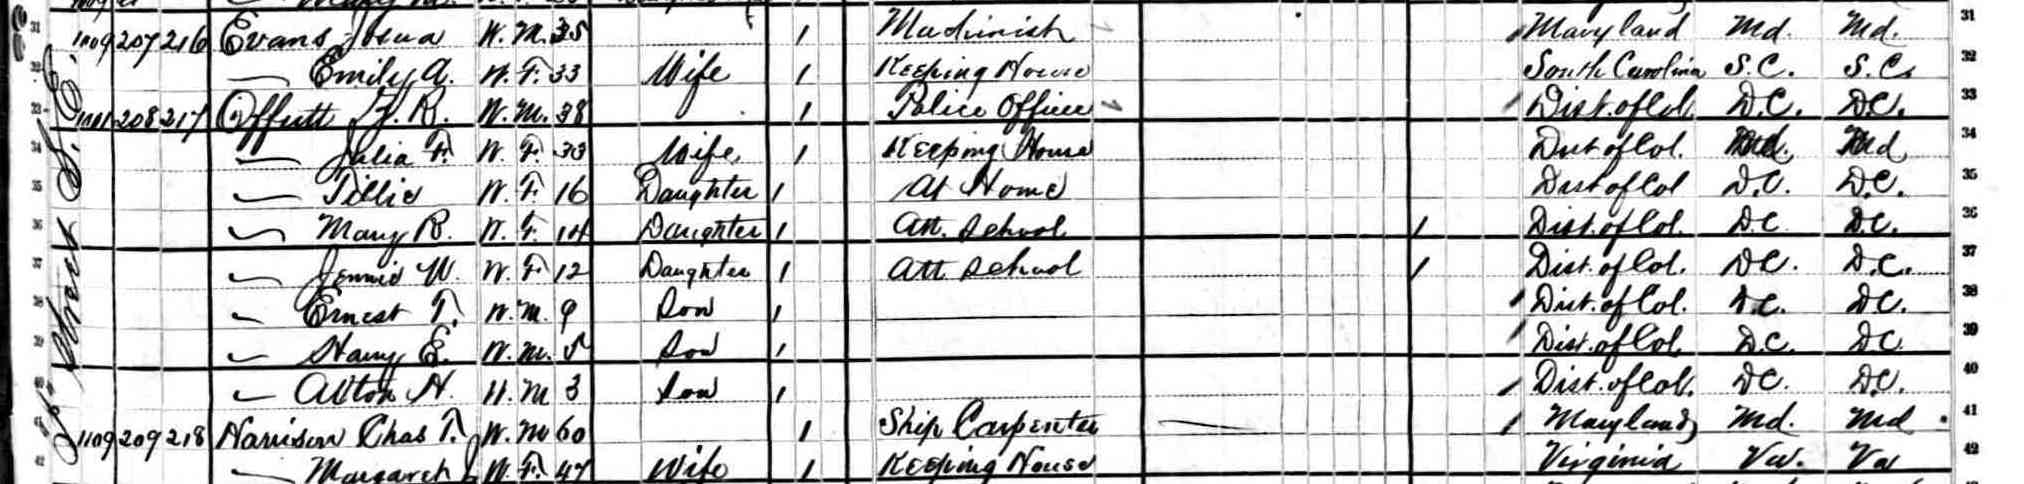 31 1109 207 216 Evans W. M. 35 1 Machinist Maryland Md. Md. 31
32 — Emily A. W. F. 33 Wife 1 Keeping House South Carolina S.C. S.C. 32
33 208 217 Offutt W. M. 38 1 Police Officer Dist. of Col. D.C. D.C. 33
34 — Julia F. W. F. 33 Wife 1 Keeping House Dist of Col. Md. Md 34
35 — Tillie W. F. 16 Daughter 1 At Home Dist of Col D.C. D.C. 35
36 — Mary R. W. F. 14 Daughter 1 Att. School 1 Dist. of Col. D.C. D.C. 36
37 — Jennie W. W. F. 12 Daughter 1 Att School 1 Dist. of Col. D.C. D.C. 37
38 — Ernest T. W. M. 9 Son 1 Dist. of Col. D.C. D.C. 38
39 — Harry E. W. M. 5 Son 1 Dist. of Col. D.C. D.C. 39
40 — Alton H. W. M 3 Son 1 Dist. of Col. D.C. D.C. 40
41 1109 209 218 Harrison Chas T. W. M 60 1 Ship Carpenter Maryland Md. Md. 41
42 — Margaret W. F. 47 Wife 1 Keeping House Virginia Va. Va 42
Street